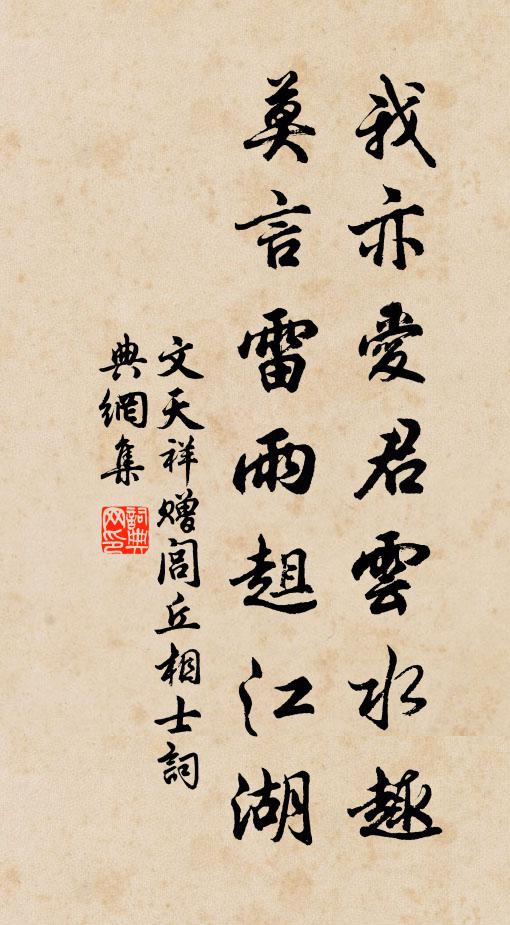 我亦愛君雲水趣
莫言雷雨起江湖
文天祥贈閭丘相士詞
典網集
詞典
网印